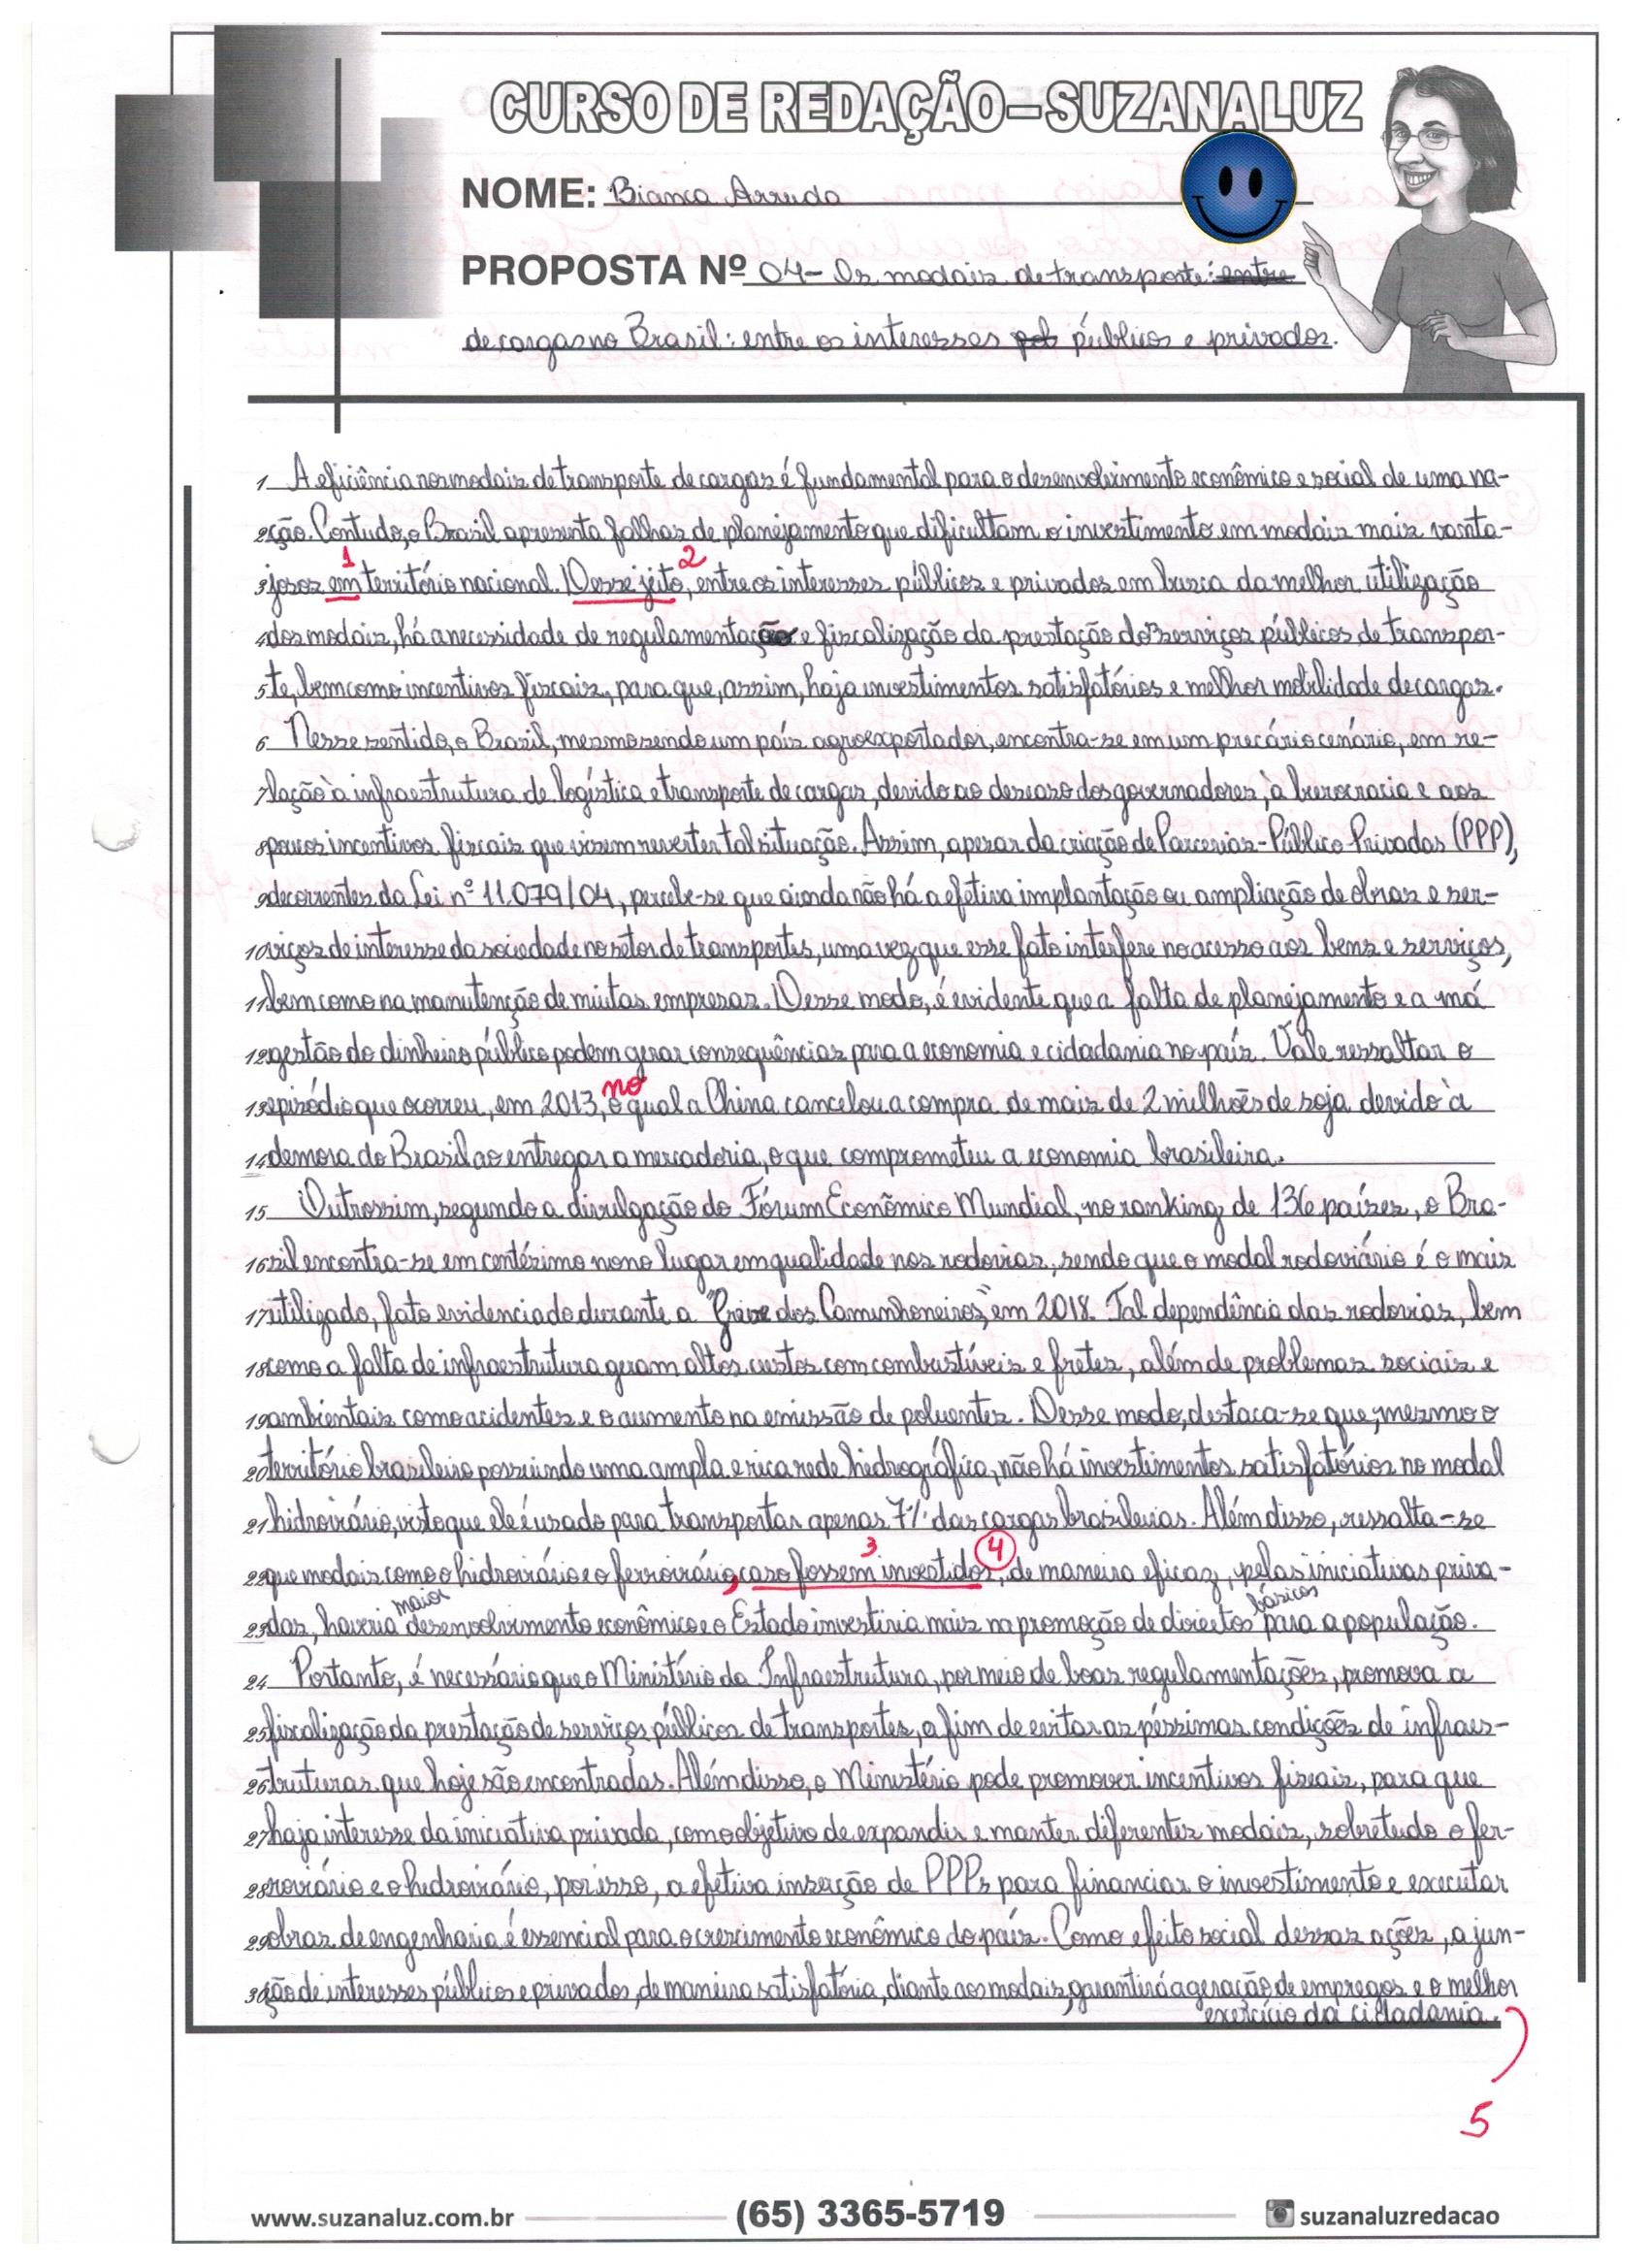 CURSO DE REDAÇÃO – SUZANA LUZ
NOME: Bianca Arruda
PROPOSTA Nº 04 - Os modais de transporte: entre
de cargas no Brasil: entre os interesses pob públicos e privados.
1 A eficiência nos modais de transporte de cargas é fundamental para o desenvolvimento econômico e social de uma na-
2 ção. Contudo, o Brasil apresenta falhas de planejamento que dificultam o investimento em modais mais vanta-
1 2
3 josos em território nacional. Desse jeito, entre os interesses públicos e privados em busca da melhor utilização
4 dos modais, há a necessidade de regulamentação e fiscalização da prestação dos serviços públicos de transpor-
5 te, bem como incentivos fiscais, para que, assim, haja investimentos satisfatórios e melhor mobilidade de cargas.
6 Nesse sentido, o Brasil, mesmo sendo um país agroexportador, encontra-se em um precário cenário, em re-
7 lação à infraestrutura de logística e transporte de cargas, devido ao descaso dos governadores, à burocracia e aos
8 poucos incentivos fiscais que visem reverter tal situação. Assim, apesar da criação de Parcerias-Público Privadas (PPP),
9 decorrentes da Lei nº 11.079/04, percebe-se que ainda não há a efetiva implantação ou ampliação de obras e ser-
10 viços de interesse da sociedade no setor de transportes, uma vez que esse fato interfere no acesso aos bens e serviços,
11 bem como na manutenção de muitas empresas. Desse modo, é evidente que a falta de planejamento e a má
12 gestão do dinheiro público podem gerar consequências para a economia e cidadania no país. Vale ressaltar o
no
13 episódio que ocorreu, em 2013, o qual a China cancelou a compra de mais de 2 milhões de soja devido à
14 demora do Brasil ao entregar a mercadoria, o que comprometeu a economia brasileira.
15 Outrossim, segundo a divulgação do Fórum Econômico Mundial, no ranking de 136 países, o Bra-
16 sil encontra-se em centésimo nono lugar em qualidade nos rodovias, sendo que o modal rodoviário é o mais
17 utilizado, fato evidenciado durante a "Greve dos Caminhoneiros", em 2018. Tal dependência das rodovias, bem
18 como a falta de infraestrutura geram altos custos com combustíveis e fretes, além de problemas sociais e
19 ambientais como acidentes e o aumento na emissão de poluentes. Desse modo, destaca-se que, mesmo o
20 território brasileiro possuindo uma ampla e rica rede hidrográfica, não há investimentos satisfatórios no modal
21 hidroviário, visto que ele é usado para transportar apenas 7% das cargas brasileiras. Além disso, ressalta-se
3 4
22 que modais como o hidroviário e o ferroviário, caso fossem investidos, de maneira eficaz, pelas iniciativas priva-
maior básicos
23 das, haveria desenvolvimento econômico e o Estado investiria mais na promoção de direitos para a população.
24 Portanto, é necessário que o Ministério da Infraestrutura, por meio de boas regulamentações, promova a
25 fiscalização da prestação de serviços públicos de transportes, a fim de evitar as péssimas condições de infraes-
26 truturas que hoje são encontradas. Além disso, o Ministério pode promover incentivos fiscais, para que
27 haja interesse da iniciativa privada, com o objetivo de expandir e manter diferentes modais, sobretudo o fer-
28 roviário e o hidroviário, por isso, a efetiva inserção de PPPs para financiar o investimento e executar
29 obras de engenharia é essencial para o crescimento econômico do país. Como efeito social dessas ações, a jun-
30 ção de interesses públicos e privados, de maneira satisfatória, diante aos modais, garantirá a geração de empregos e o melhor
exercício da cidadania.
5
www.suzanaluz.com.br (65) 3365-5719 suzanaluzredacao